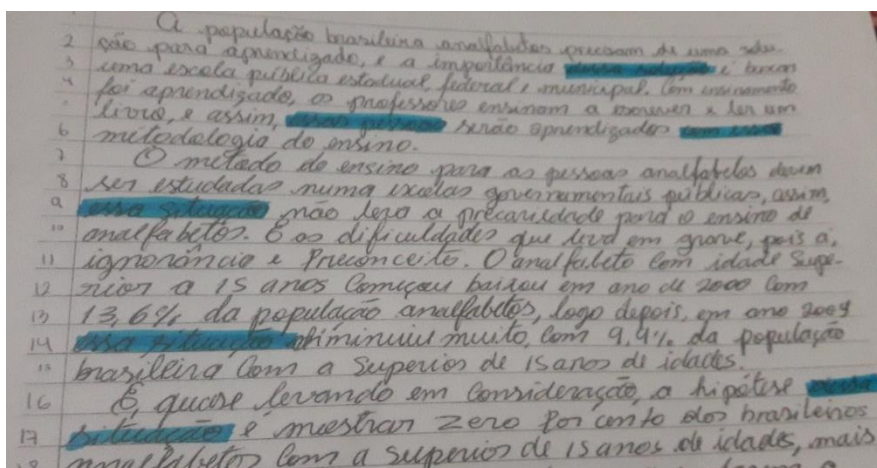 A população brasileira analfabetos precisam de uma edu-
2 ção para aprendizado, e a importância dessa solução é buscar
3 uma escola pública estadual, federal e municipal. Com ensinamento
4 foi aprendizado, os professores ensinam a escrever e ler um
livro, e assim, essas pessoas serão aprendizados com essa
6 metodologia do ensino.
7 O metodo do ensino para as pessoas analfabetos devem
8 ser estudadas numa escolas governamentais públicas, assim,
9 essa situação não leva a precariedade para o ensino de
10 analfabetos. E as dificuldades que leva em grave, pois a,
11 ignorância e Preconceito. O analfabeto com idade Supe-
12 rior a 15 anos Começou baixou em ano de 2000 Com
13 13,6% da população analfabetos, logo depois, em ano 2009
14 essa situação diminuiu muito, com 9,4% da população
15 brasileira Com a Superior de 15 anos de idades.
16 E, quase levando em Consideração, a hipótese dessa
17 situação é mostrar zero por cento dos brasileiros
analfabetos Com a superior de 15 anos de idades, mais